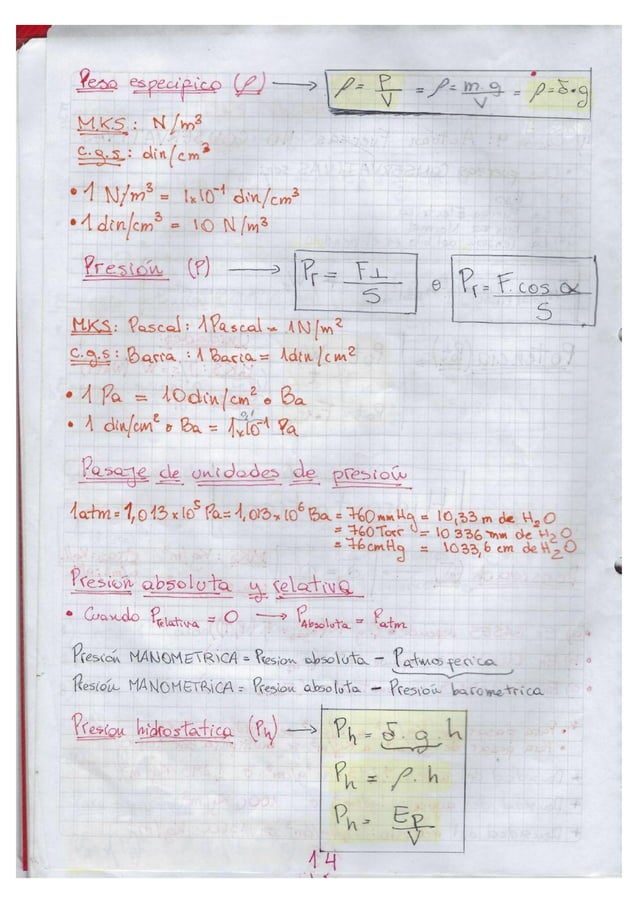 Peso especifico (ρ) → ρ = P/V = ρ = m.g/V = ρ = δ.g
M.K.S : N/m³
c.g.s : din/cm³
• 1 N/m³ = 1x10⁻¹ din/cm³
• 1 din/cm³ = 10 N/m³
Presión (P) → Pr = F⊥/S o Pr = F.cos α/S
MKS: Pascal : 1 Pascal = 1N/m²
c.g.s : Barra : 1 Baria = 1din/cm²
• 1 Pa = 10 din/cm² o Ba
• 1 din/cm² o Ba = 1x10⁻¹ Pa
0,1
Pasaje de unidades de presión
1atm = 1,013 x 10⁵ Pa = 1,013 x 10⁶ Ba = 760 mmHg = 10,33 m de H₂O
= 760 Torr = 10 336 mm de H₂O
= 76 cmHg = 1033,6 cm de H₂O
Presion absoluta y relativa
• Cuando Prelativa = 0 → PAbsoluta = Patm
Presión MANOMETRICA = Presion absoluta - Patmosferica
Presión MANOMETRICA = Presion absoluta - Presión barometrica
Presion hidrostatica (Ph) → Ph = δ.g.h
Ph = ρ.h
Ph = Ep/V
14